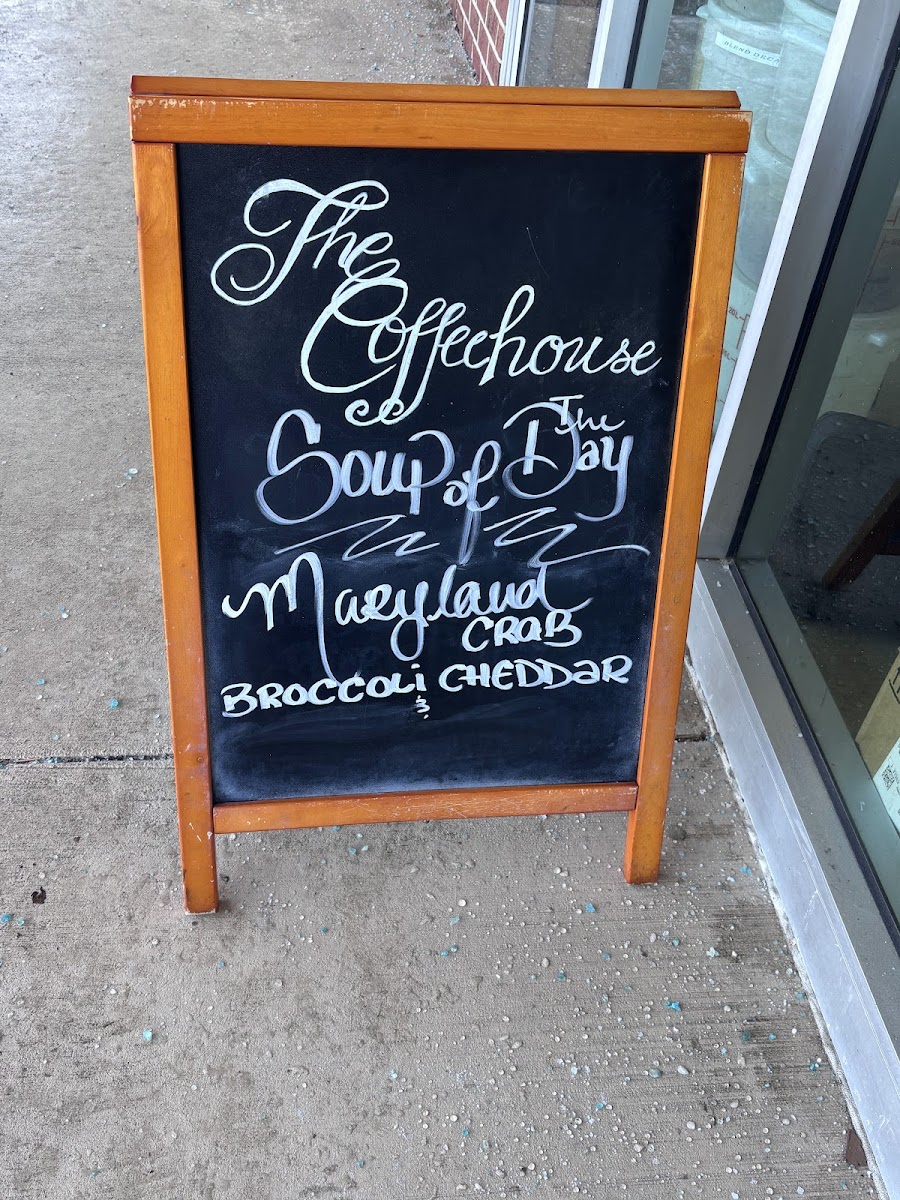 The
Coffeehouse
Soup of The Day
Maryland
CRAB
BROCCOLi CHEDDAR
&
BLEND DECA